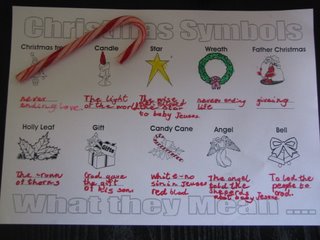 Christmas Symbols
Christmas tree Candle Star Wreath Father Christmas
never The light The never ending giving
ending love. of the world the star life
to baby Jesus
Holly Leaf Gift Candy Cane Angel Bell
The crown God gave white = no The angel To lead the
of thorns the gift sin in Jesus told the people to
of his son red blood shepherds God.
about baby Jesus
What they Mean ....